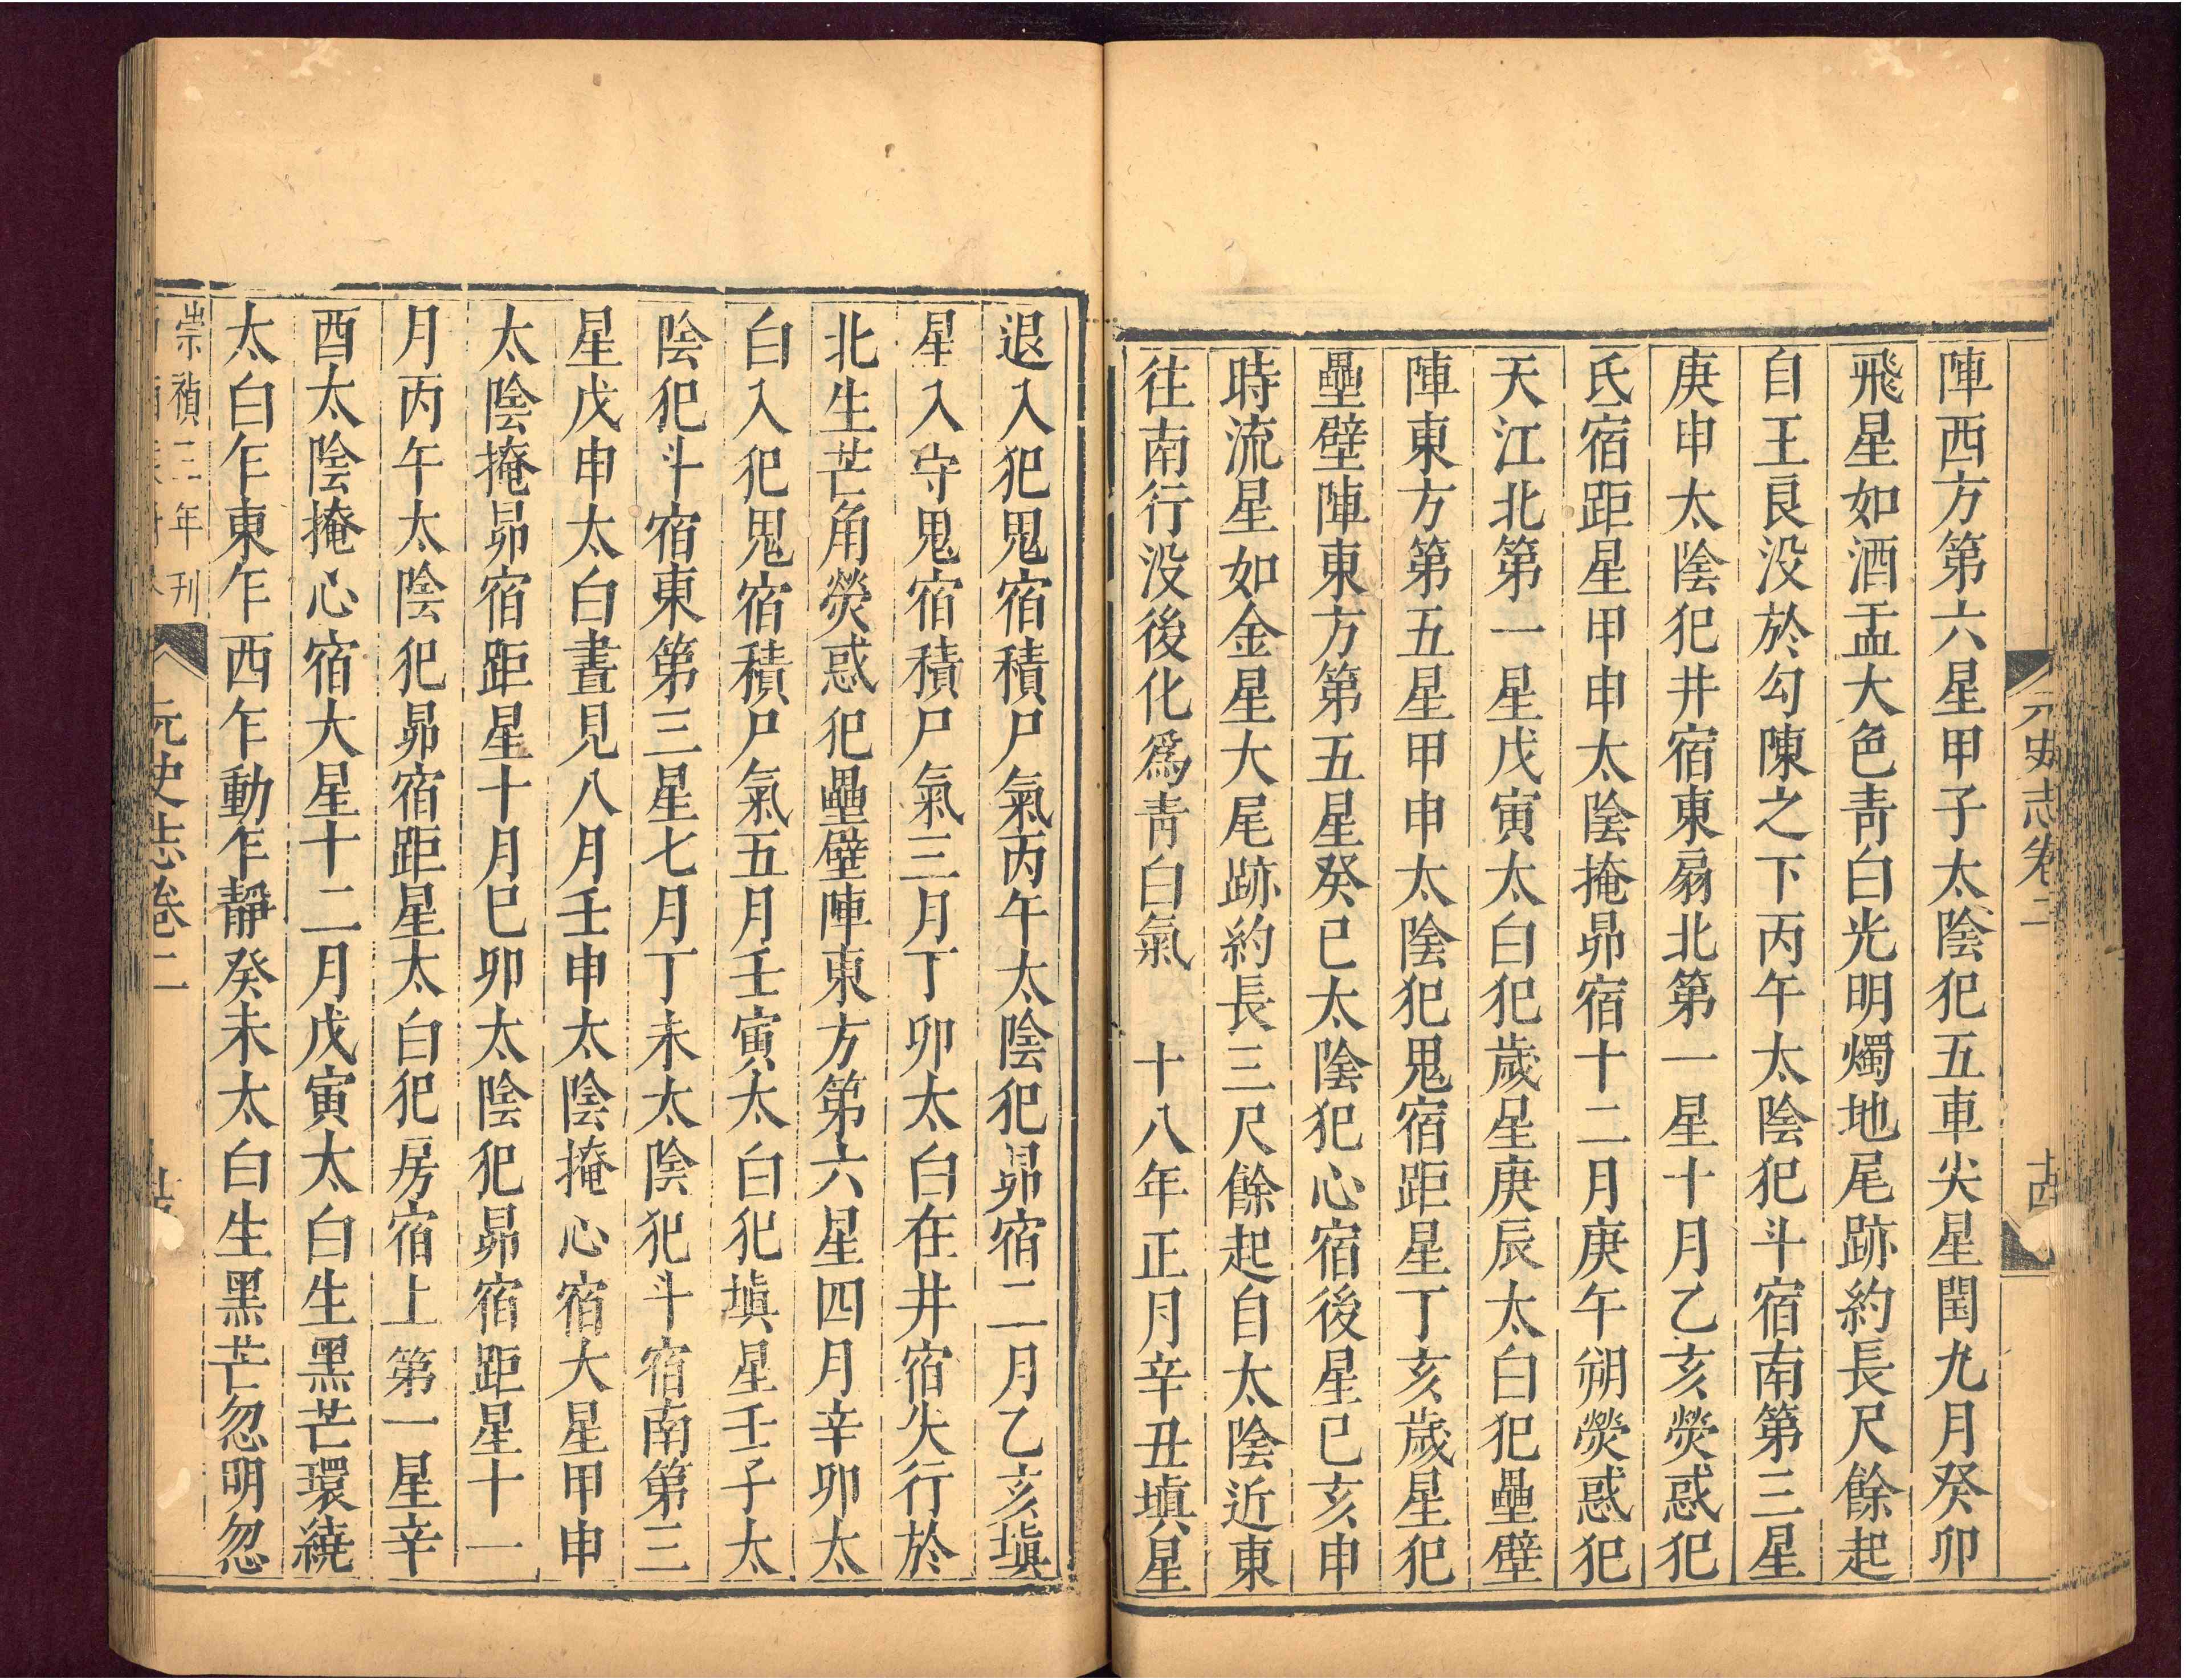 元史志卷二
陣西方第六星甲子太陰犯五車尖星閏九月癸卯
飛星如酒盂大色青白光明燭地尾跡約長尺餘起
自王良没於勾陳之下丙午太陰犯斗宿南第三星
庚申太陰犯井宿東扇北第一星十月乙亥熒惑犯
氐宿距星甲申太陰掩昴宿十二月庚午朔熒惑犯
天江北第一星戊寅太白犯歲星庚辰太白犯壘壁
陣東方第五星甲申太陰犯鬼宿距星丁亥歲星犯
壘壁陣東方第五星癸巳太陰犯心宿後星巳亥申
時流星如金星大尾跡約長三尺餘起自太陰近東
往南行没後化爲青白氣　十八年正月辛丑塡星
退入犯鬼宿積尸氣丙午太陰犯昴宿二月乙亥塡
星入守鬼宿積尸氣三月丁卯太白在井宿失行於
北生芒角熒惑犯壘壁陣東方第六星四月辛卯太
白入犯鬼宿積尸氣五月壬寅太白犯塡星壬子太
陰犯斗宿東第三星七月丁未太陰犯斗宿南第三
星戊申太白晝見八月壬申太陰掩心宿大星甲申
太陰掩昴宿距星十月巳卯太陰犯昴宿距星十一
月丙午太陰犯昴宿距星太白犯房宿上第一星辛
酉太陰掩心宿大星十二月戊寅太白生黑芒環繞
太白乍東乍西乍動乍靜癸未太白生黑芒忽明忽
崇禎三年刊
元史志卷二